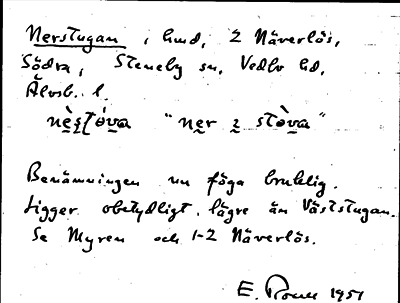 Nerstugan, hmd, 2 Näverlös,
Södra, Steneby sn, Vedbo hd,
Älvsb. l.
nè̱s̱tó̱va "ne̱r i̱ stòva"
Benämningen nu föga bruklig.
Ligger obetydligt lägre än Väststugan.
Se Myren och 1-2 Näverlös.
E. 1951